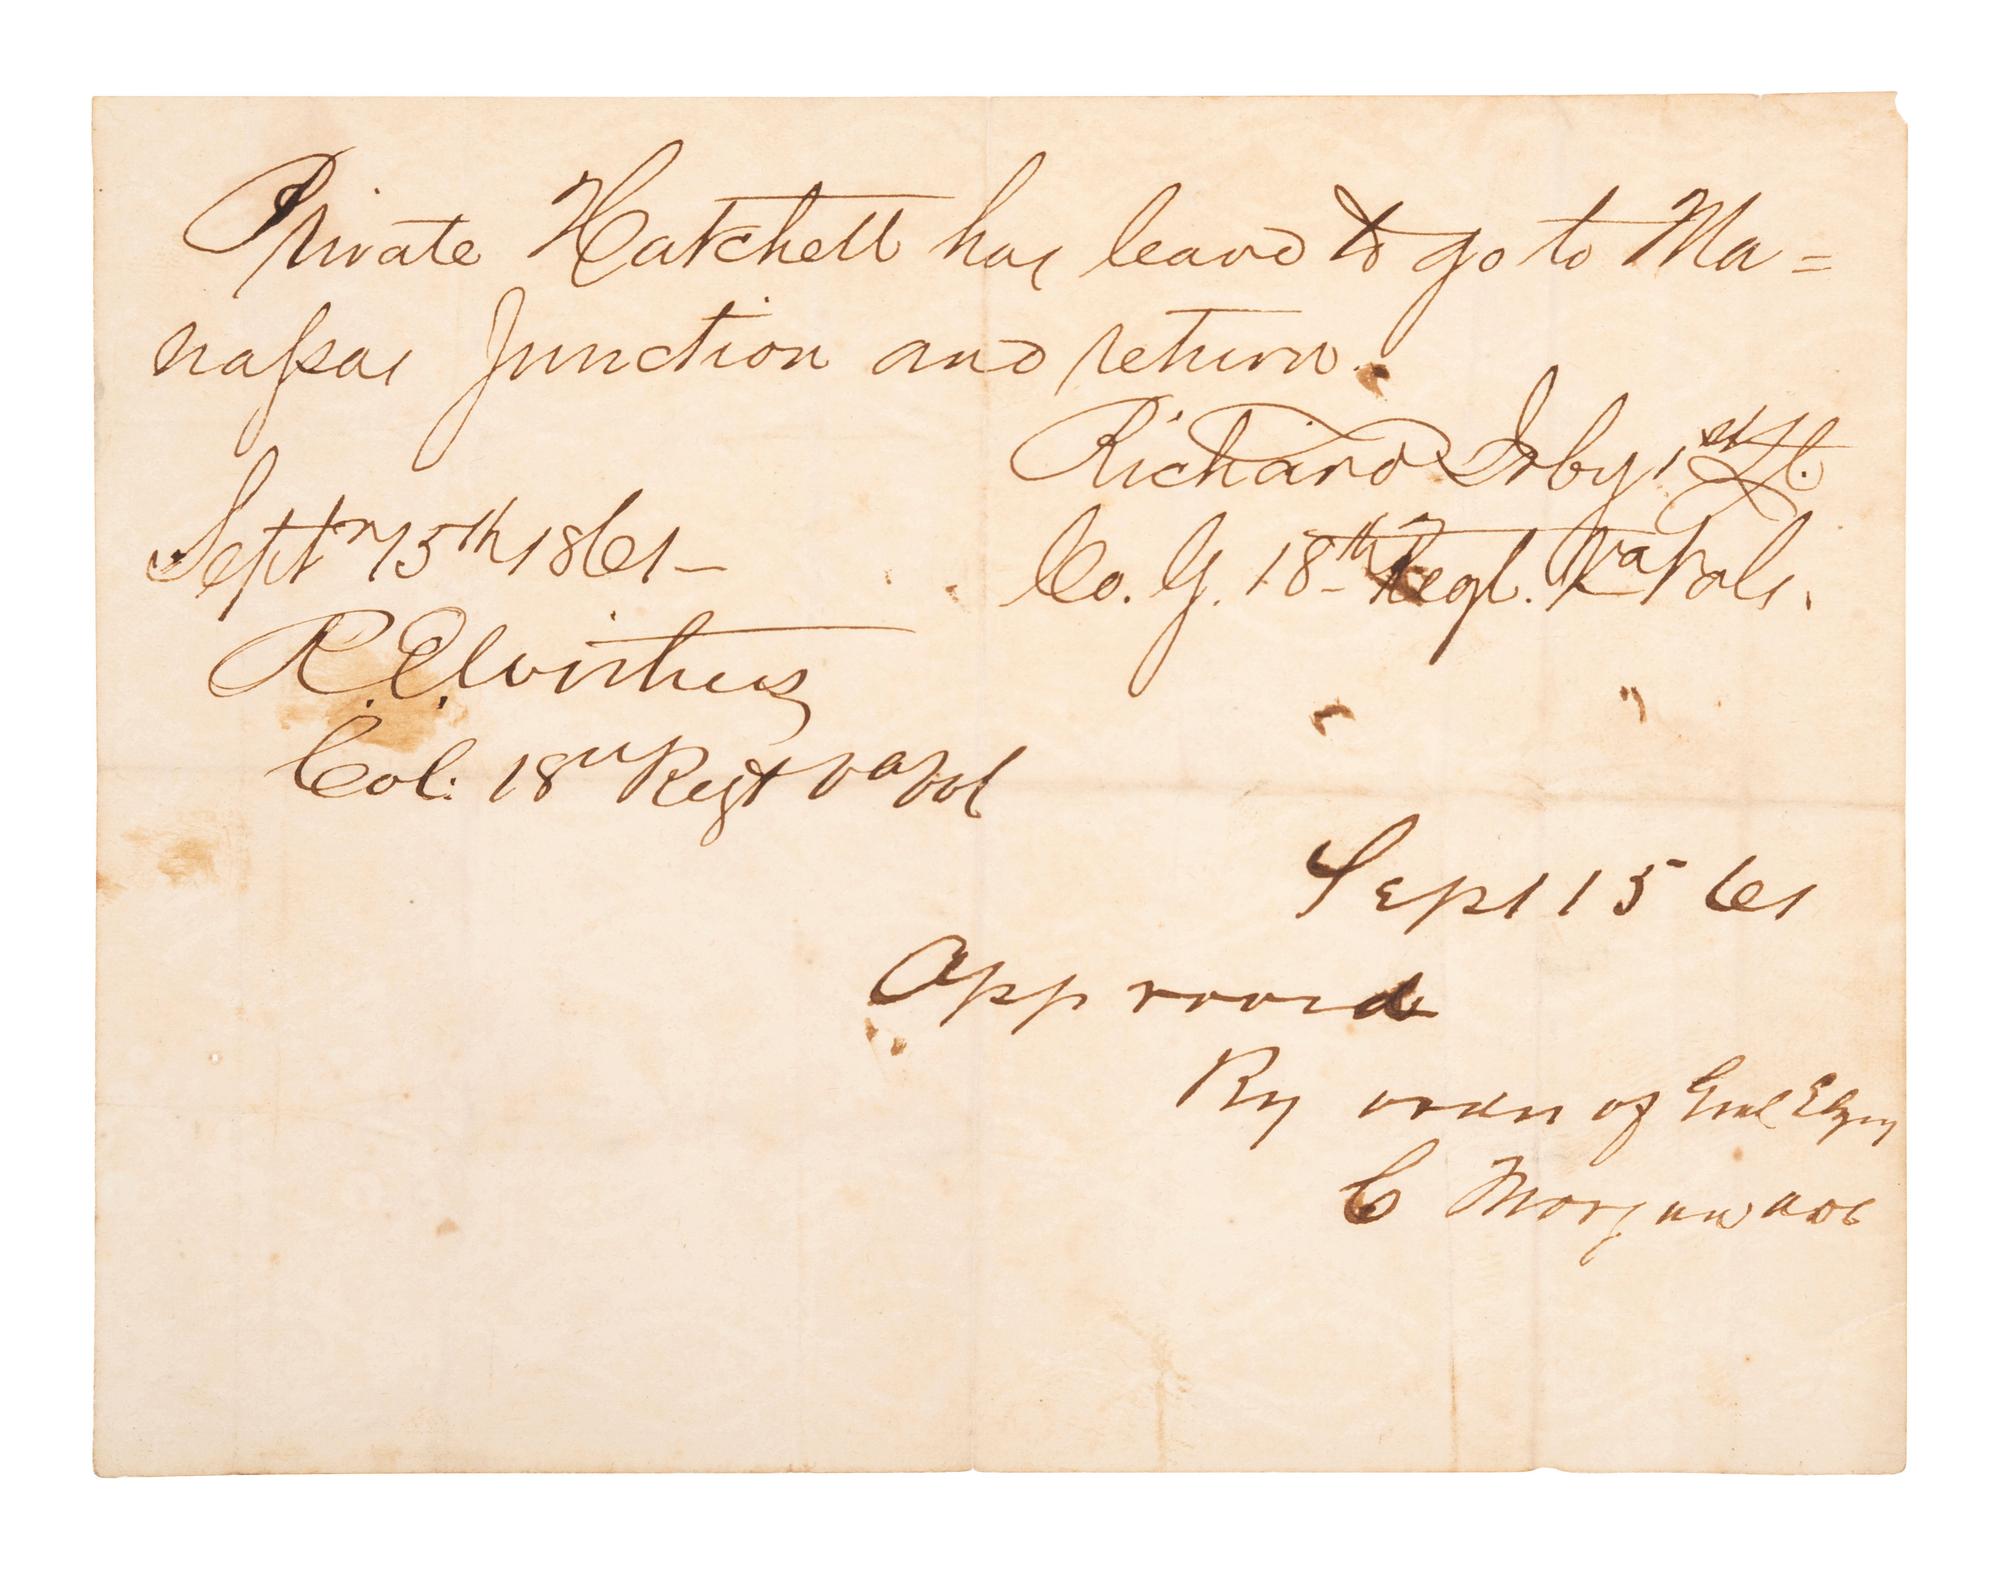 Private Hatchett has leave to go to Ma=
nassas Junction and return.
Richard Irby 1st Lt.
Co. G. 18th Regt. Va Vols.
Septr 15th 1861—
R. E. Withers
Col: 18th Regt Va Vol
" "
Sept 15 61
Approved
By order of Genl
C Morgan ADC